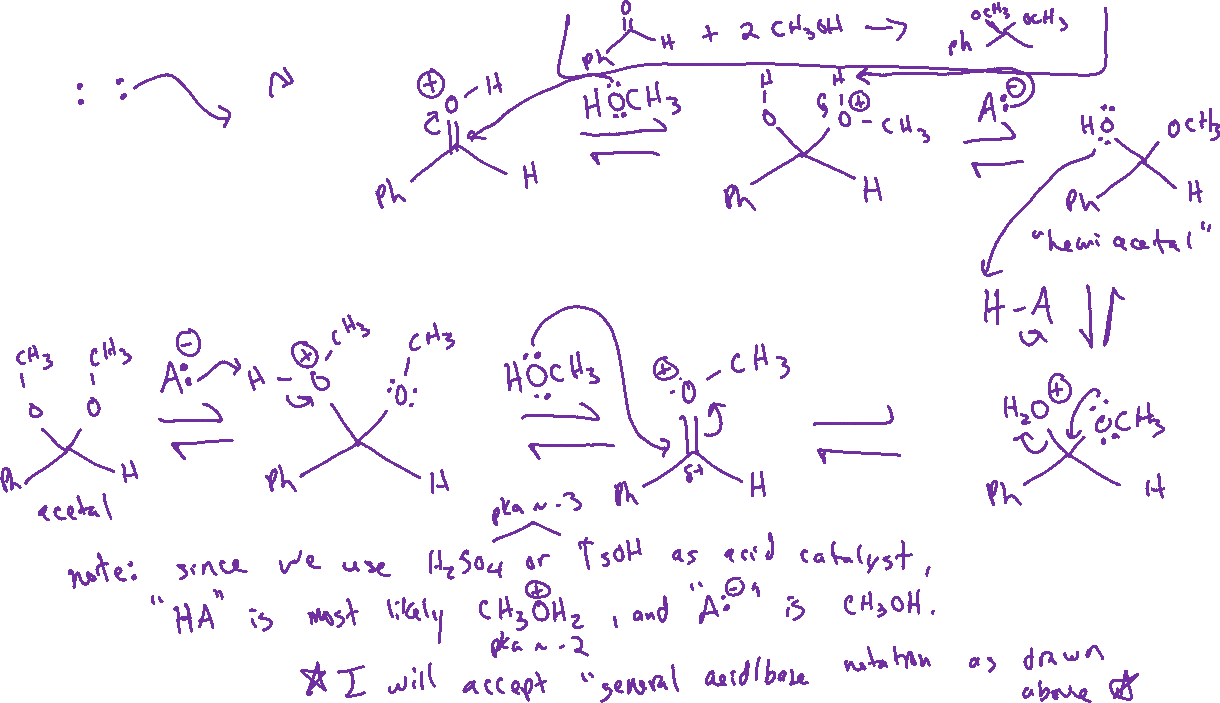 O
Ph H + 2 CH3OH → OCH3 OCH3 Ph
⊕ O-H Ph H
HOCH3
H H O O ⊕ -CH3 Ph H
A: ⊖
HO OCH3 Ph H
"hemi acetal"
H-A
CH3 CH3 O O Ph H
acetal
A: ⊖
H-O ⊕ CH3 CH3 O Ph H
HOCH3
⊕ O-CH3 Ph δ+ H
H2O ⊕ OCH3 Ph H
pka ~ -3
note: since we use H2SO4 or TsOH as acid catalyst,
"HA" is most likely CH3OH2 ⊕, and "A: ⊖" is CH3OH.
pka ~ -2
☆ I will accept "general acid/base notation as drawn
above ☆